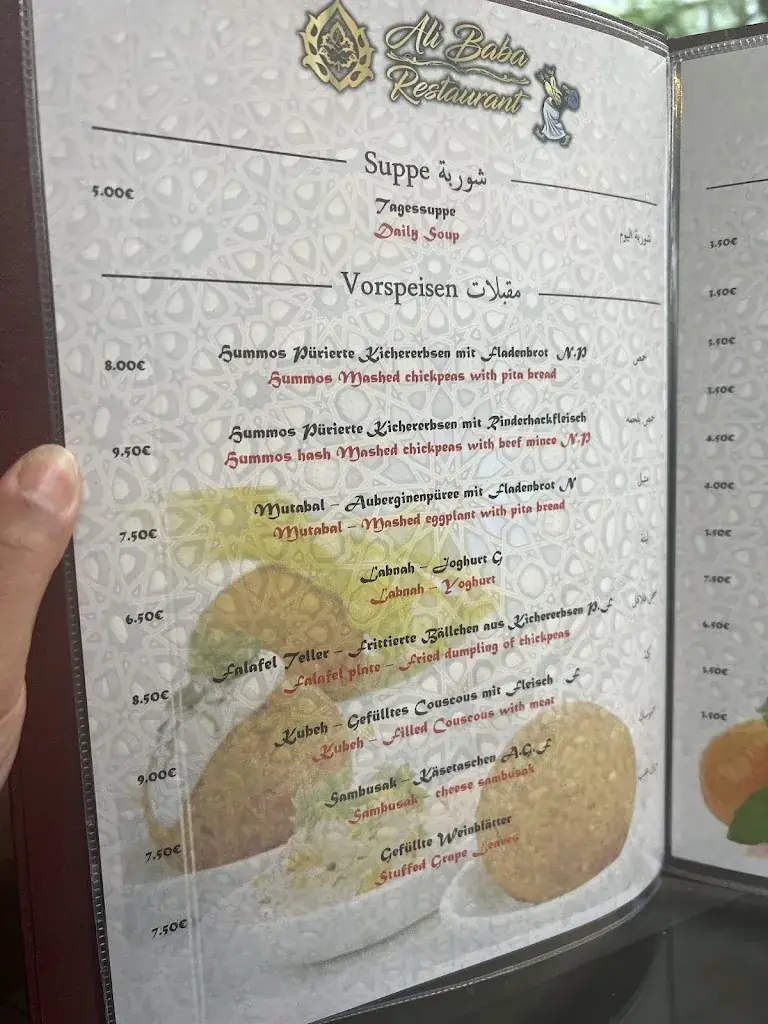 Ali Baba
Restaurant
Suppe شوربة
5.00€
Tagessuppe
Daily Soup
شوربة اليوم
Vorspeisen مقبلات
8.00€
Hummos Pürierte Kichererbsen mit Fladenbrot N.P
Hummos Mashed chickpeas with pita bread
حمص
9.50€
Hummos Pürierte Kichererbsen mit Rinderhackfleisch
Hummos hash Mashed chickpeas with beef mince N.P
حمص بلحمه
7.50€
Mutabal – Auberginenpüree mit Fladenbrot N
Mutabal – Mashed eggplant with pita bread
متبل
6.50€
Labnah – Joghurt G
Labnah – Yoghurt
لبنة
8.50€
Falafel Teller – Frittierte Bällchen aus Kichererbsen P.F
Falafel plate – Fried dumpling of chickpeas
9.00€
Kubeh – Gefülltes Couscous mit Fleisch F
Kubeh – Filled Couscous with meat
7.50€
Sambusak – Käsetaschen A.G.F
Sambusak – cheese sambusak
7.50€
Gefüllte Weinblätter
Stuffed Grape Leaves
3.50€
3.50€
3.50€
3.50€
4.50€
4.00€
3.50€
7.50€
6.50€
3.50€
3.50€